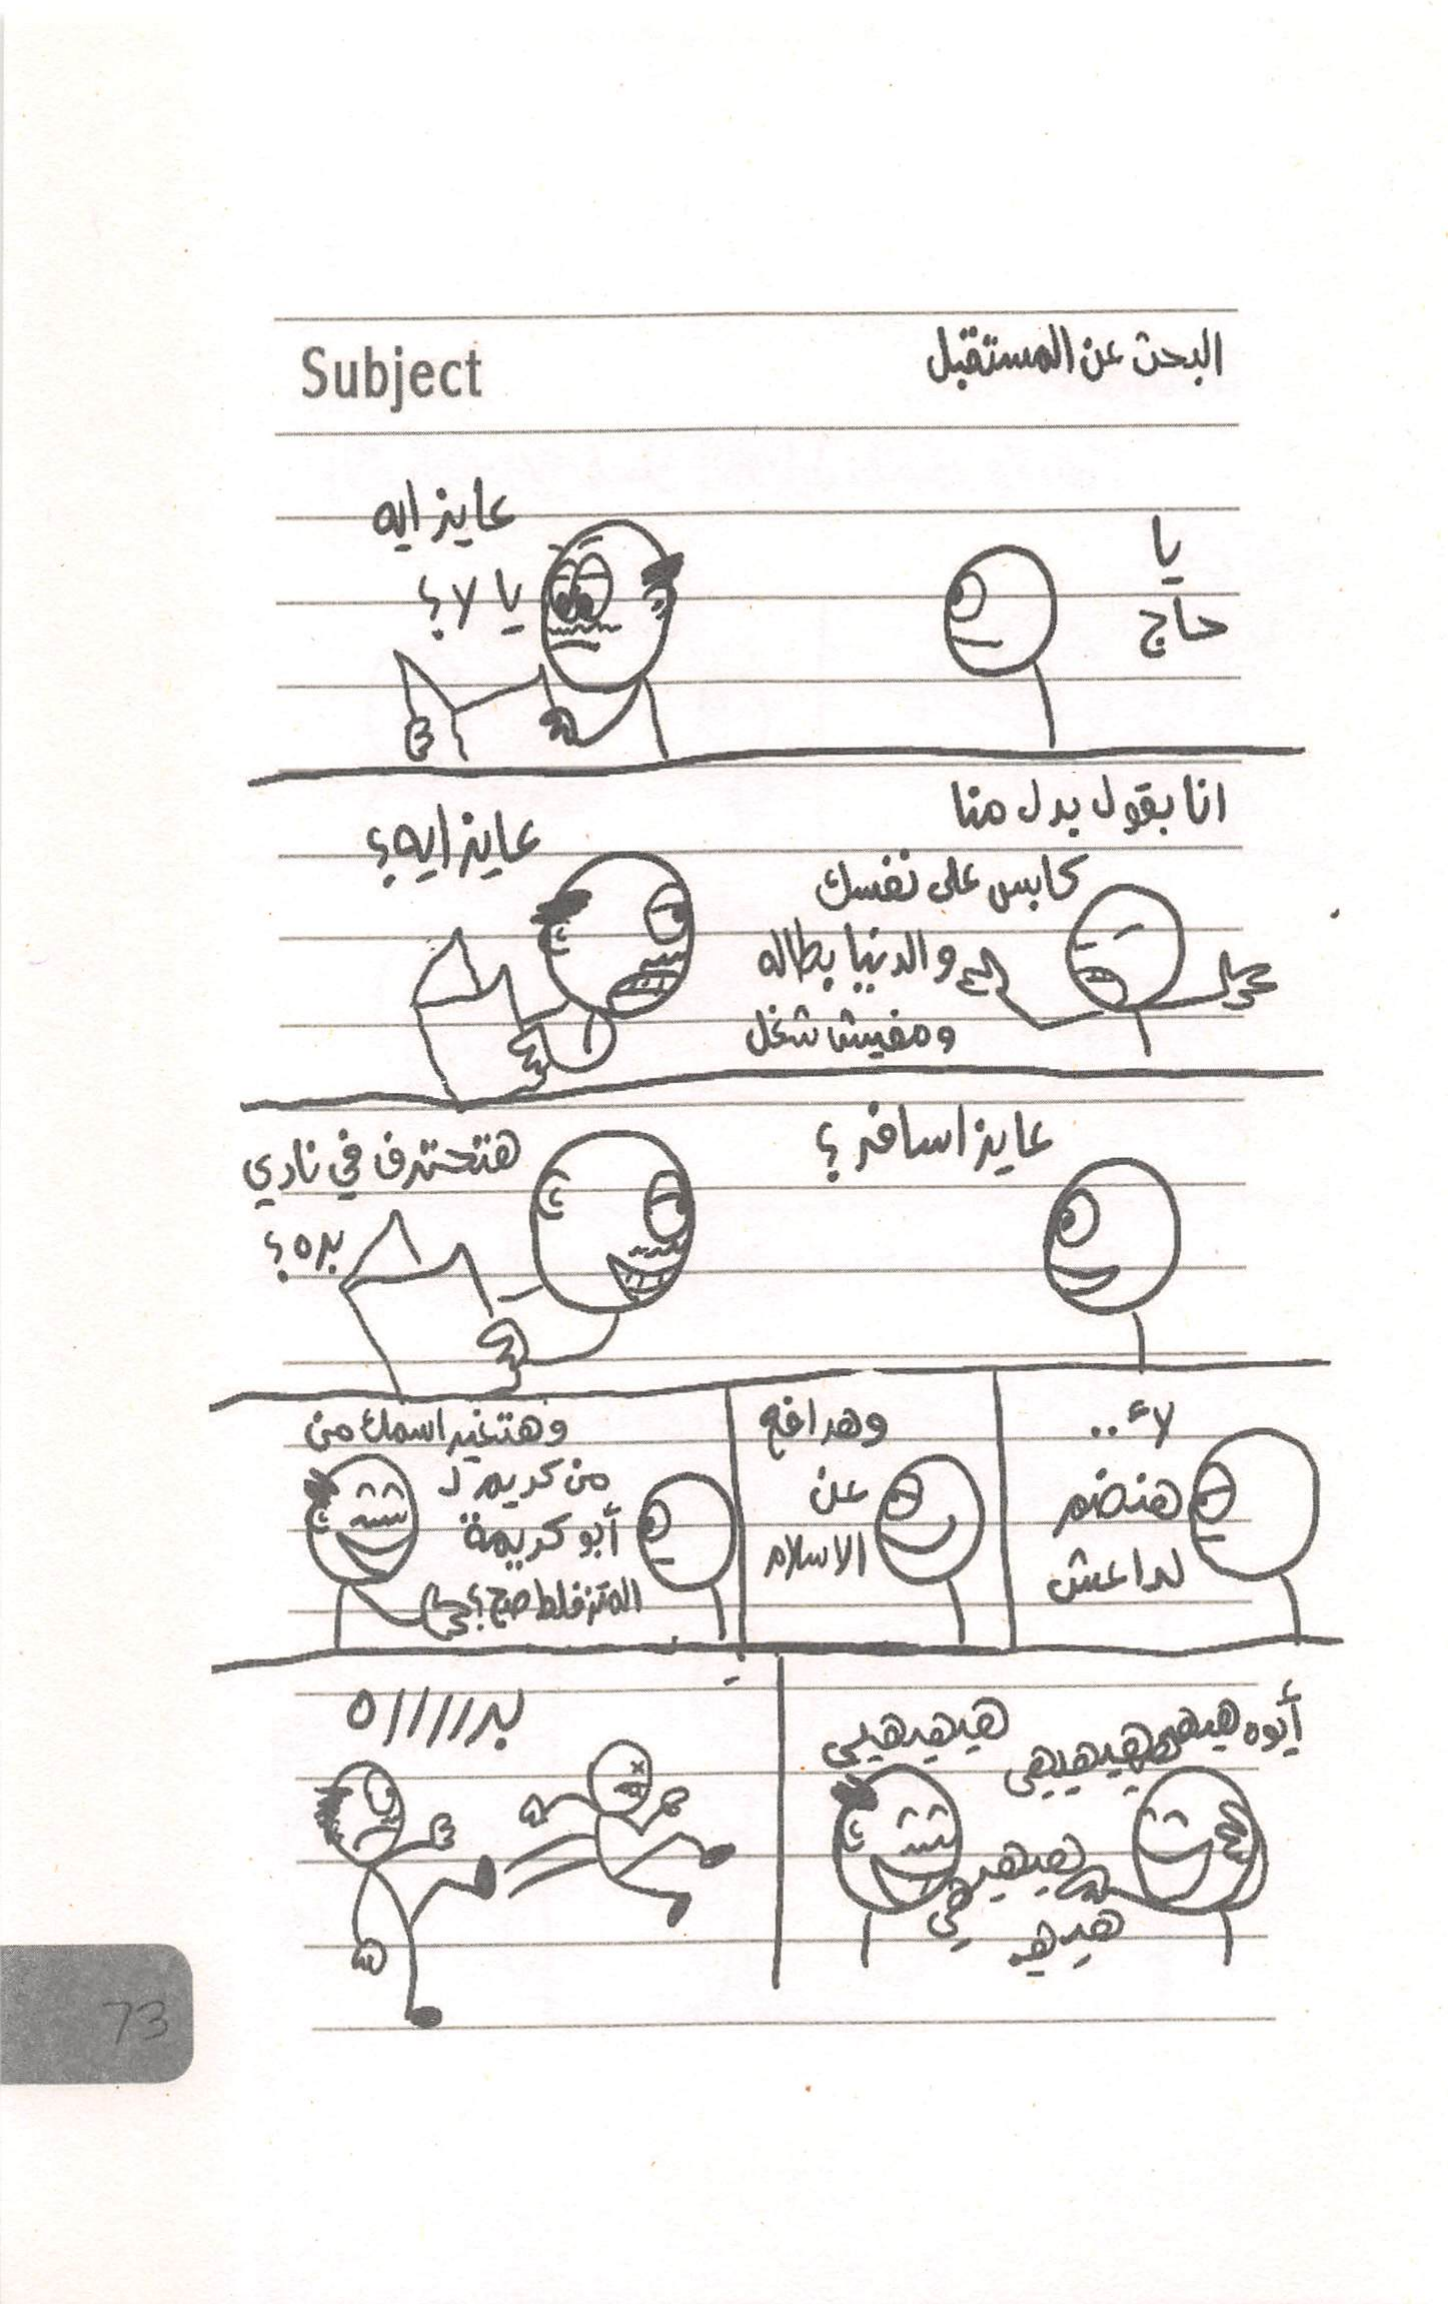 Subject
البحث عن المستقبل
يا
حاج
عايز ايه
يا لا؟
انا بقول بدل منا
كابس على نفسك
والدنيا بطاله
ومفيش شغل
عايز ايه؟
عايز اسافر؟
هتحترف في نادي
بره؟
لاء..
هنضم
لداعش
وهدافع
عن
الاسلام
وهتغير اسمك من
من كريم لـ
أبو كريمة
المتزفلط صح؟
أيوه هيهيهيهيهيهي
هيهيهيي
هيهيهي
هيهيهـ
بررررره
73